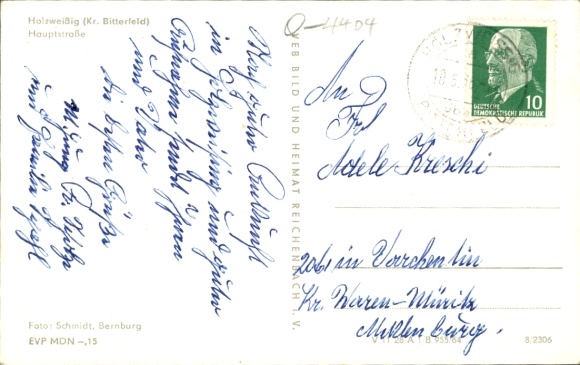 Holzweißig (Kr. Bitterfeld)
Hauptstraße
Q-4404
Nach guter Ankunft
in Holzweißig und guter
Aufnahme sendet Ihnen
und Vater
die besten Grüße
und Familie
VEB BILD UND HEIMAT REICHENBACH I. V.
DEUTSCHE
DEMOKRATISCHE REPUBLIK
10
An
Frl
Adele Kreschi
2061 in Varchentin
Kr. Waren-Müritz
Meklenburg.
Foto: Schmidt, Bernburg
EVP MDN -,15
V 11 28 A 1 B 955/64
8/2306